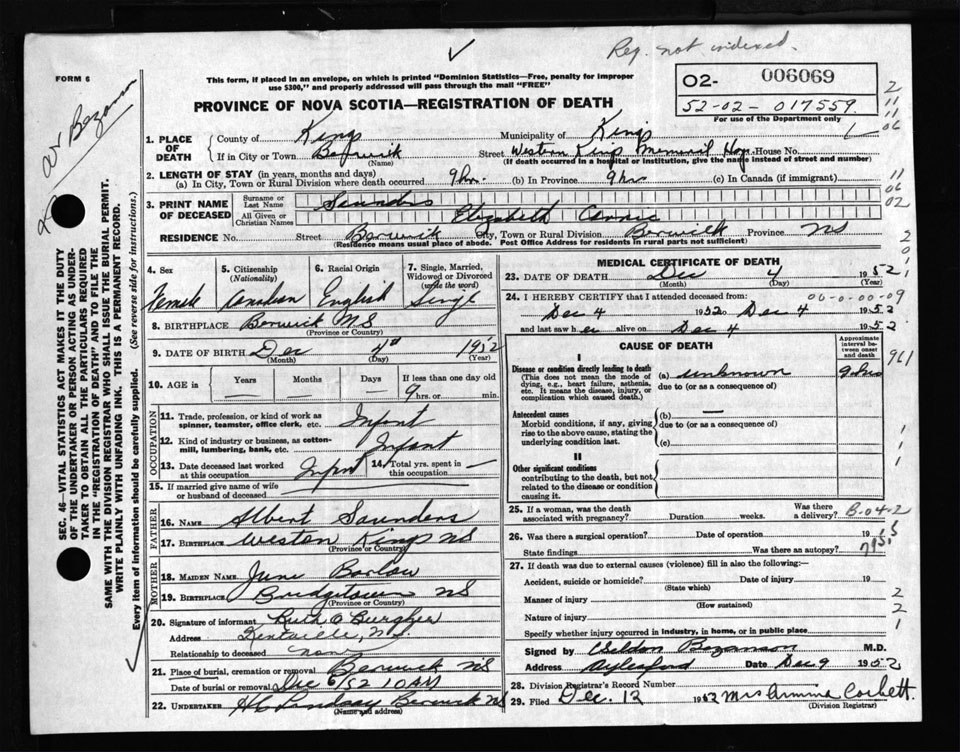 Reg. not indexed.
FORM 6
This form, if placed in an envelope, on which is printed "Dominion Statistics—Free, penalty for improper
use $300," and properly addressed will pass through the mail "FREE"
O2- 006069
52-02-017559
For use of the Department only
PROVINCE OF NOVA SCOTIA—REGISTRATION OF DEATH
Dr Bezanson
SEC. 46—VITAL STATISTICS ACT MAKES IT THE DUTY
OF THE UNDERTAKER OR PERSON ACTING AS UNDER-
TAKER TO OBTAIN ALL THE PARTICULARS REQUIRED
IN THE "REGISTRATION OF DEATH" AND TO FILE THE
SAME WITH THE DIVISION REGISTRAR WHO SHALL ISSUE THE BURIAL PERMIT.
WRITE PLAINLY WITH UNFADING INK. THIS IS A PERMANENT RECORD.
Every item of information should be carefully supplied. (See reverse side for instructions.)
1. PLACE OF DEATH
County of Kings Municipality of Kings
If in City or Town Berwick Street Western Kings Memorial Hosp. House No.
(Name) (If death occurred in a hospital or institution, give the name instead of street and number)
2. LENGTH OF STAY (in years, months and days)
(a) In City, Town or Rural Division where death occurred 9 hr. (b) In Province 9 hrs (c) In Canada (if immigrant)
3. PRINT NAME OF DECEASED
Surname or Last Name Saunders
All Given or Christian Names Elizabeth Connie
RESIDENCE No. Street Berwick City, Town or Rural Division Berwick Province NS
(Residence means usual place of abode. Post Office Address for residents in rural parts not sufficient)
4. Sex Female
5. Citizenship (Nationality) Canadian
6. Racial Origin English
7. Single, Married, Widowed or Divorced (write the word) Single
8. BIRTHPLACE Berwick NS
(Province or Country)
9. DATE OF BIRTH Dec 4th 1952
(Month) (Day) (Year)
10. AGE in Years Months Days If less than one day old
9 hrs. or min.
OCCUPATION
11. Trade, profession, or kind of work as spinner, teamster, office clerk, etc. Infant
12. Kind of industry or business, as cotton-mill, lumbering, bank, etc. Infant
13. Date deceased last worked at this occupation Infant 14. Total yrs. spent in this occupation —
15. If married give name of wife or husband of deceased
FATHER
16. NAME Albert Saunders
17. BIRTHPLACE Weston Kings NS
(Province or Country)
MOTHER
18. MAIDEN NAME June Barlow
19. BIRTHPLACE Bridgetown NS
(Province or Country)
20. Signature of informant Ruth A Burgher
Address Kentville, N.S.
Relationship to deceased none
21. Place of burial, cremation or removal Berwick NS
Date of burial or removal Dec 6/52 10 AM
22. UNDERTAKER HC Lindsay Berwick NS
(Name and address)
MEDICAL CERTIFICATE OF DEATH
23. DATE OF DEATH Dec 4 1952
(Month) (Day) (Year)
24. I HEREBY CERTIFY that I attended deceased from: 00-0-00-09
Dec 4 1952 to Dec 4 1952
and last saw her alive on Dec 4 1952
CAUSE OF DEATH
Approximate interval between onset and death
I
Disease or condition directly leading to death (a) unknown 9 hrs
(This does not mean the mode of dying, e.g., heart failure, asthenia, etc. It means the disease, injury, or complication which caused death.)
due to (or as a consequence of)
Antecedent causes (b) —
Morbid conditions, if any, giving rise to the above cause, stating the underlying condition last.
due to (or as a consequence of)
(c)
II
Other significant conditions
contributing to the death, but not related to the disease or condition causing it.
961
25. If a woman, was the death associated with pregnancy? Duration weeks. Was there a delivery? B-04-2
26. Was there a surgical operation? Date of operation 19
State findings Was there an autopsy?
27. If death was due to external causes (violence) fill in also the following:—
Accident, suicide or homicide? Date of injury 19
(State which)
Manner of injury
(How sustained)
Nature of injury
Specify whether injury occurred in industry, in home, or in public place
Signed by Weldon Bezanson M.D.
Address Aylesford Date Dec 9 1952
28. Division Registrar's Record Number
29. Filed Dec. 12 1952 Mrs Ermina Corbett.
(Division Registrar)